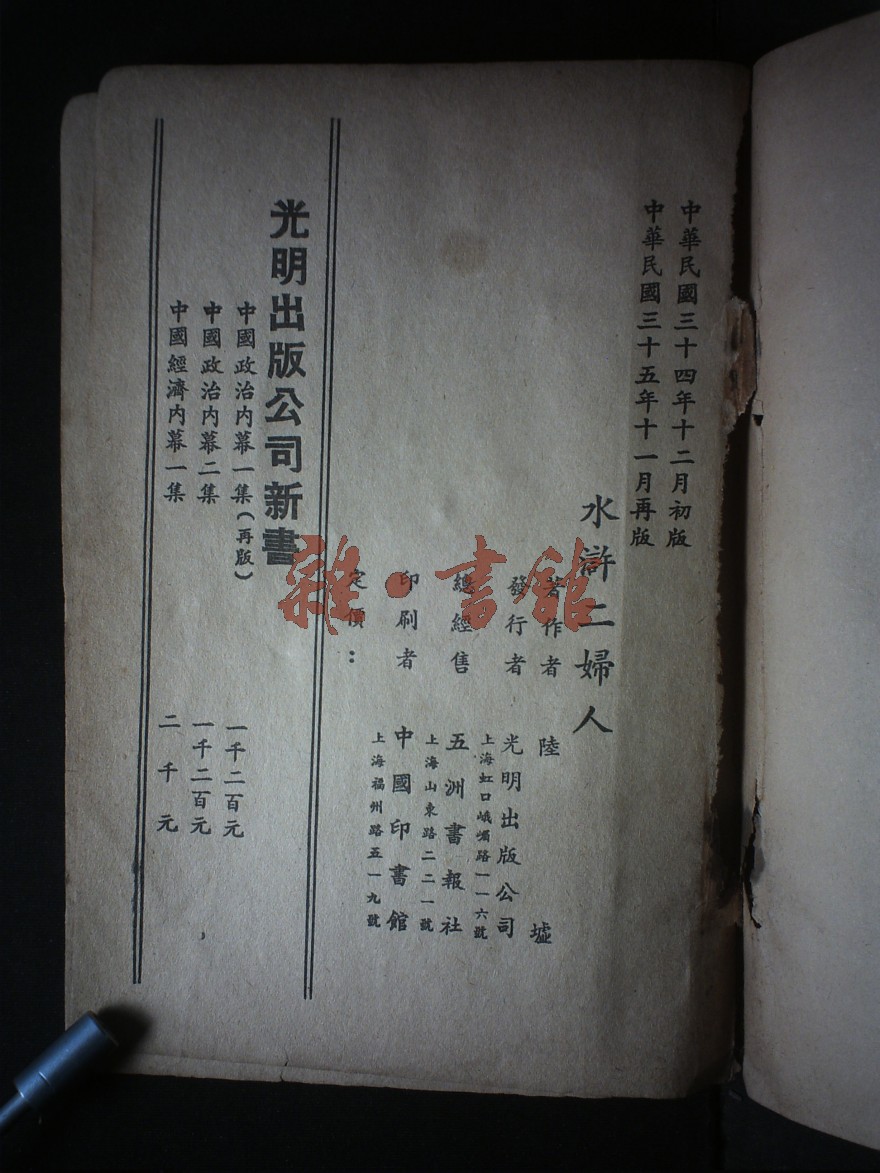 中華民國三十四年十二月初版
中華民國三十五年十一月再版
水滸二婦人
著作者 陸墟
發行者 光明出版公司
上海虹口峨嵋路一一六號
總經售 五洲書報社
上海山東路二二一號
印刷者 中國印書館
上海福州路五一九號
定價：
光明出版公司新書
中國政治內幕一集(再版) 一千二百元
中國政治內幕二集 一千二百元
中國經濟內幕一集 二千元
雜·書館